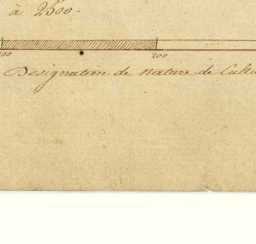 à 2500.
100 200
Designation de nature de Cultu